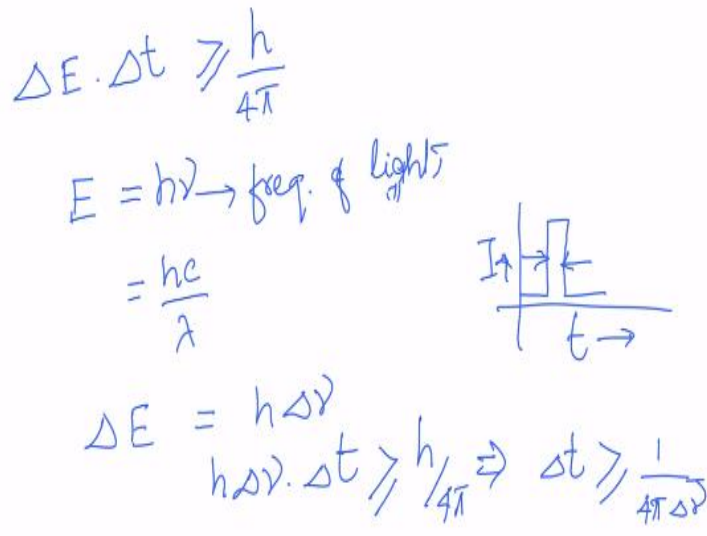 ΔE.Δt ⩾ h/4π
E = hν → freq. of light
= hc/λ
I↑
t →
ΔE = hΔν
hΔν.Δt ⩾ h/4π ⇒ Δt ⩾ 1/4πΔν